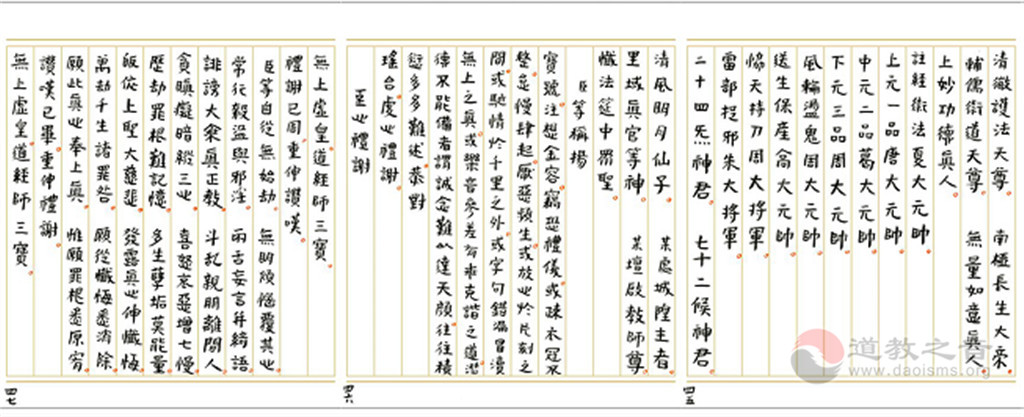 清微護法天尊 南極長生大帝
輔儒衛道天尊 無量如意真人
上妙功德真人
註經衛法夏大元帥
上元一品唐大元帥
中元二品葛大元帥
下元三品周大元帥
風輪盪鬼周大元帥
送生保產高大元帥
協天持刀周大將軍
雷部捉邪朱大將軍
二十四炁神君 七十二候神君
四五
清風明月仙子 某處城隍主者
里域真官等神 某壇啟教師尊
懺法筵中眾聖
臣等稱揚
寶號注想金容竊恐禮儀或疎衣冠不
整怠慢肆起厭惡頻生或放心於片刻之
間或馳情於千里之外或字句錯漏冒瀆
無上之真或樂音參差有乖克諧之道潛
德不能備者謂誠念難以達天顏往往積
愆多多難述恭對
瑤台虔心禮謝
至心禮謝
四六
無上虛皇道經師三寶
禮謝已周重伸讚嘆
臣等自從無始劫 無明煩惱覆其心
常行殺盜與邪淫 兩舌妄言并綺語
誹謗大乘真正教 斗亂親朋離間人
貪瞋癡暗縱三心 喜怒哀惡增七慢
歷劫罪根難記憶 多生孽垢莫能量
皈依上聖大慈悲 發露真心伸懺悔
萬劫千生諸罪咎 願從懺悔悉消除
願此真心奉上真 惟願罪根悉原宥
讚嘆已畢重伸禮謝
無上虛皇道經師三寶
四七
道教之音
www.daoisms.org